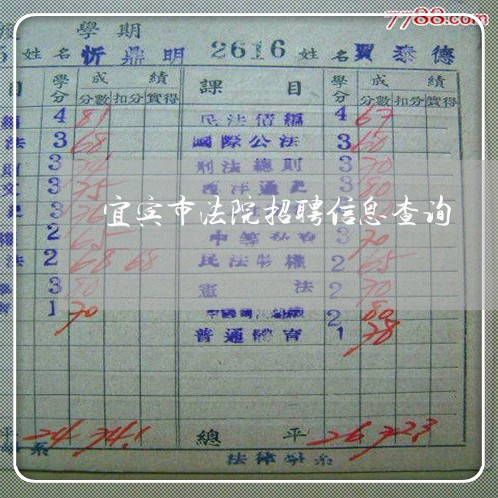 7788.com
學期
5 姓名 忻鼎明 2616 姓名 賈泰德
目 學分 成績 課目 學分 成績
分數 扣分 實得 分數 扣分 實得
4 81 民法債編 4 67
法 3 68 國際公法 3 60
3 刑法總則 3 70
3 75 西洋通史 3 80
宜宾市法院招聘信息查询
2 65 3 70
法 2 68 68 民法物權 2 65
3 80 憲法 2 70
1 70 2 80
普通體育 1 78
平 24 74.1 總平 26 72.3
系 法律學系